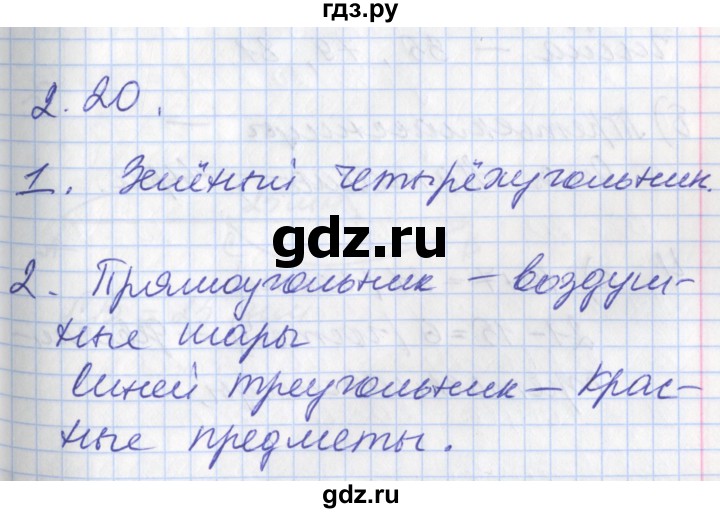 гдз.ру
2.20.
1. Зелёный четырёхугольник.
gdz.ru
2. Прямоугольник – воздуш-
ные шары
Синей треугольник – Крас-
ные предметы.
gdz.ru